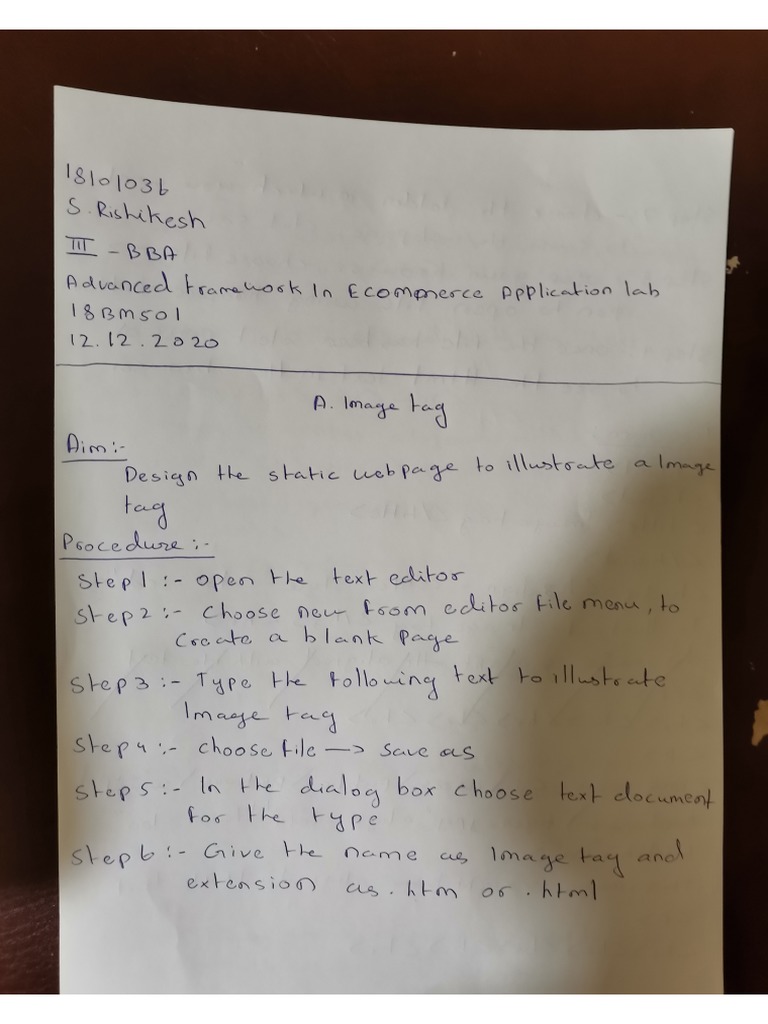 18101036
S. Rishikesh
III - BBA
Advanced Framework In Ecommerce Application lab
18BM501
12.12.2020
A. Image tag
Aim:-
Design the static webpage to illustrate a Image
tag
Procedure:-
Step1:- open the text editor
Step2:- Choose new from editor file menu, to
create a blank page
Step3:- Type the following text to illustrate
Image tag
Step4:- choose file → save as
Step5:- In the dialog box choose text document
for the type
Step6:- Give the name as Image tag and
extension as .htm or .html